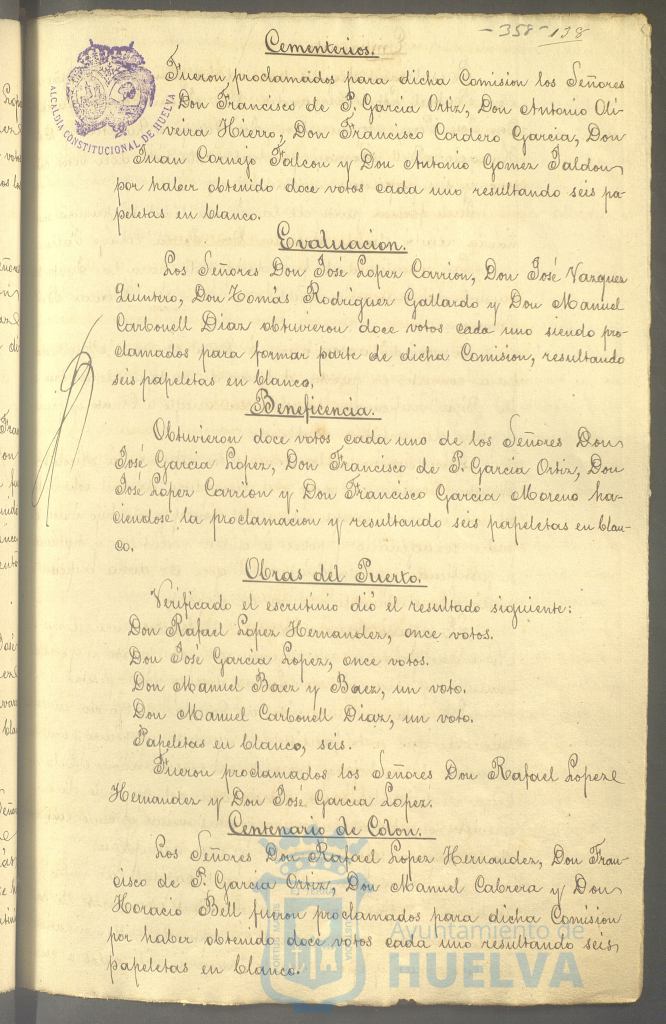 - 358 - 138
Cementerios.
Fueron proclamados para dicha Comision los Señores
Don Francisco de P. Garcia Ortiz, Don Antonio Oli-
veira Hierro, Don Francisco Cordero Garcia, Don
Juan Cornejo Falcon y Don Antonio Gomez Jaldon
por haber obtenido doce votos cada uno resultando seis pa-
peletas en blanco.
Evaluacion.
Los Señores Don José Lopez Carrion, Don José Vazquez
Quintero, Don Tomás Rodriguez Gallardo y Don Manuel
Carbonell Diaz obtuvieron doce votos cada uno siendo pro-
clamados para formar parte de dicha Comision, resultando
seis papeletas en blanco.
Beneficencia.
Obtuvieron doce votos cada uno de los Señores Don
José Garcia Lopez, Don Francisco de P. Garcia Ortiz, Don
José Lopez Carrion y Don Francisco Garcia Moreno ha-
ciendose la proclamacion y resultando seis papeletas en blan-
co.
Obras del Puerto.
Verificado el escrutinio dió el resultado siguiente:
Don Rafael Lopez Hernandez, once votos.
Don José Garcia Lopez, once votos.
Don Manuel Baez y Baez, un voto.
Don Manuel Carbonell Diaz, un voto.
Papeletas en blanco, seis.
Fueron proclamados los Señores Don Rafael Lopez
Hernandez y Don José Garcia Lopez.
Centenario de Colon.
Los Señores Don Rafael Lopez Hernandez, Don Fran-
cisco de P. Garcia Ortiz, Don Manuel Cabrera y Don
Horacio Bell fueron proclamados para dicha Comision
por haber obtenido doce votos cada uno resultando seis
papeletas en blanco.
ALCALDIA CONSTITUCIONAL DE HUELVA
Ayuntamiento de
HUELVA